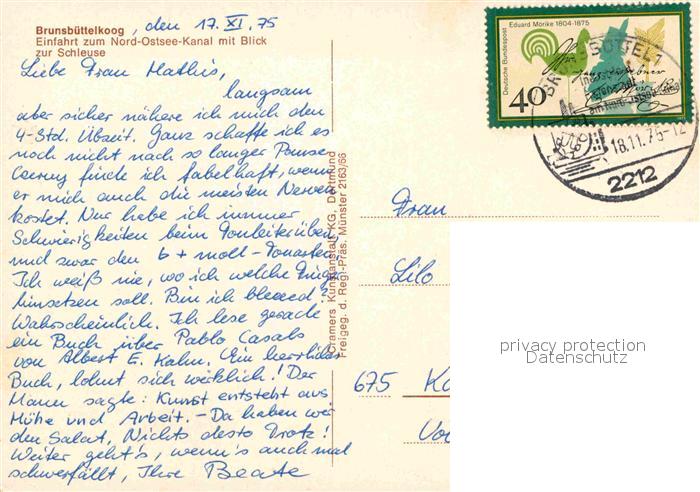 Brunsbüttelkoog, den 17. XI. 75
Einfahrt zum Nord-Ostsee-Kanal mit Blick
zur Schleuse
Liebe Frau Mathis,
langsam
aber sicher nähere ich mich den
4-Std. Übzeit. Ganz schaffe ich es
noch nicht nach so langer Pause
Czerny finde ich fabelhaft, wenn
er mich auch die meisten Nerven
kostet. Nur habe ich immer
Schwierigkeiten beim Tonleiterüben,
und zwar den b + moll-Tonarten.
Ich weiß nie, wo ich welche Finger
hinsetzen soll. Bin ich
Wahrscheinlich. Ich lese gerade
ein Buch über Pablo Casals
von Albert E. Kahn. Ein herrliches
Buch, lohnt sich wirklich! Der
Mann sagte: Kunst entsteht aus
Mühe und Arbeit. - Da haben wir
den Salat, Nichts desto Trotz!
Weiter geht's, wenn's auch mal
schwerfällt, Ihre Beate
Cramers Kunstanstalt KG, Dortmund
Freigeg. d. Reg.-Präs. Münster 2163/66
Deutsche Bundespost
Eduard Mörike 1804-1875
40
18.11.75-12
2212
Frau
Lilo
675 Ka
privacy protection
Datenschutz